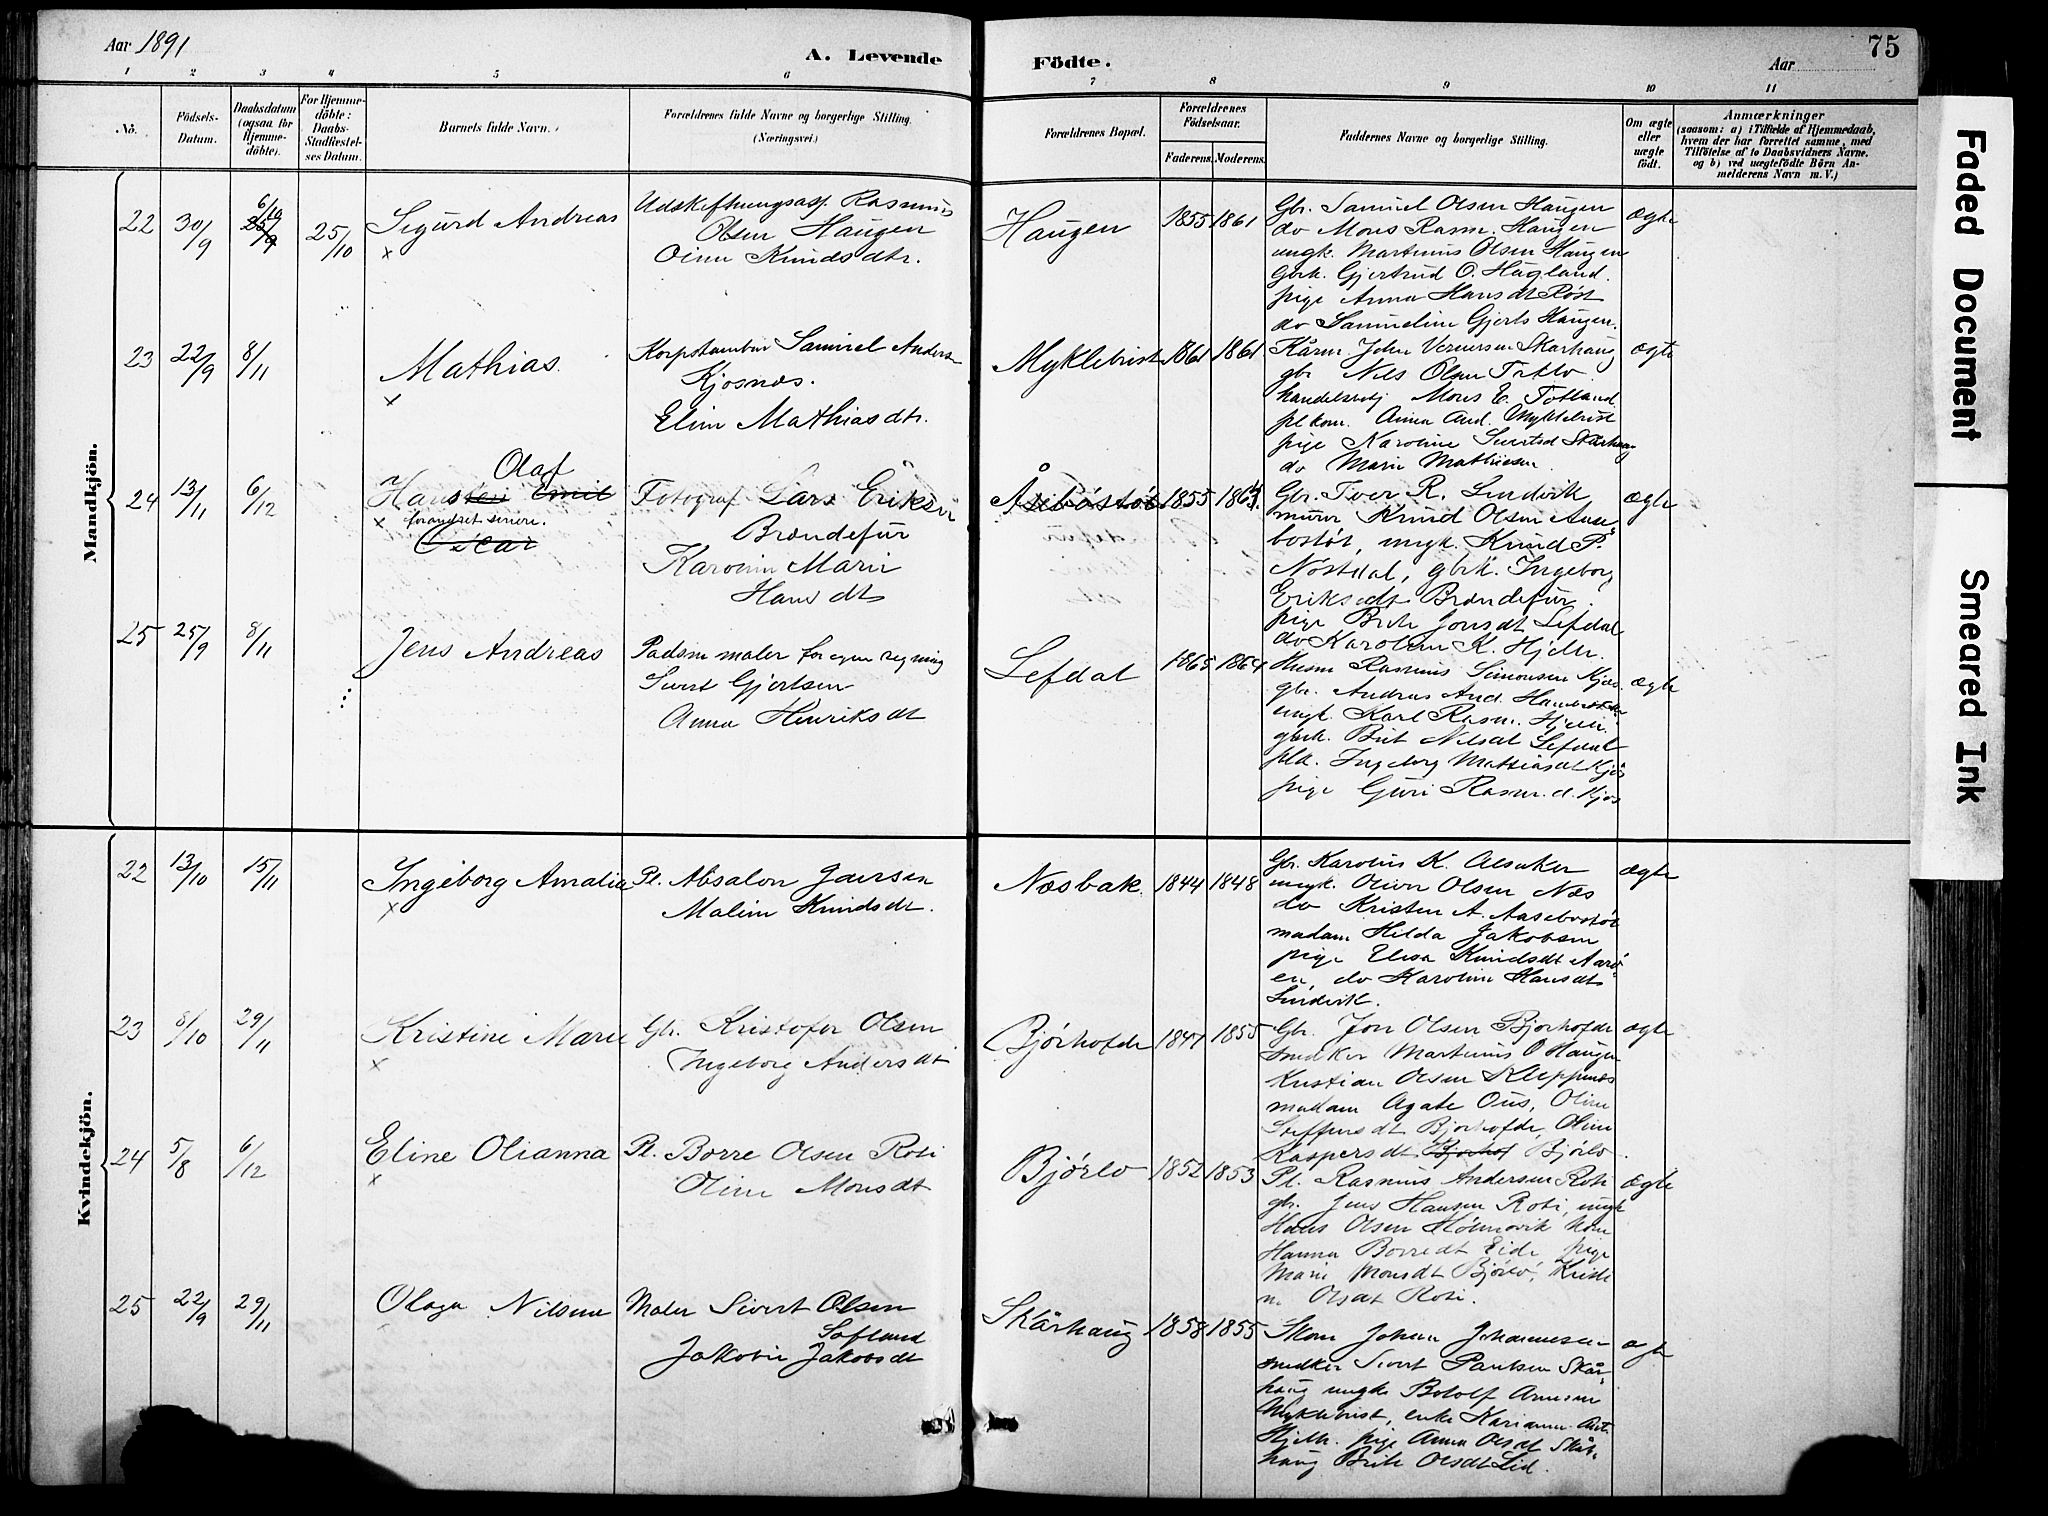 Aar 1891
A. Levende Födte.
Aar
75
1 2 3 4 5 6 7 8 9 10 11
No.
Födsels-Datum.
Daabsdatum (ogsaa for Hjemme-döbte).
For Hjemme-döbte: Daabs-Stadfæstel-ses Datum.
Barnets fulde Navn.
Forældrenes fulde Navne og borgerlige Stilling. (Næringsvei.)
Forældrenes Bopæl.
Forældrenes Födselsaar.
Faderens. Moderens.
Faddernes Navne og borgerlige Stilling.
Om ægte eller uægte födt.
Anmærkninger
(saasom: a) i Tilfælde af Hjemmedaab,
hvem der har forrettet samme, med
Tilföielse af to Daabsvidners Navne.
og b) ved uægtefödte Börn An-
melderens Navn m. V.)
Mandkjön.
22 30/9 6/10 25/9 25/10 Sigurd Andreas
Udskiftningsass. Rasmus
Olsen Haugen
Oline Knudsdtr.
Haugen 1855 1861
Gbr. Samuel Olsen Haugen
do Mons Rasm. Haugen
ungk. Martinus Olsen Haugen
Gbrk. Gjertrud O. Hagland
pige Anna Hansdt Røst
do Samueline Gjerts Haugen.
ægte
23 22/9 8/11 Mathias.
Korpstambur Samuel Anders
Kjosnæs.
Eline Mathiasdtr.
Myklebust 1861 1861
Kårm John Verner Skarhaug
gbr Nils Olsen
handelsbetj Mons E. Totland
plkom. Anna And. Myklebust
pige Karoline Sivertsd Skarhaug
do Marie Mathiesen
ægte
24 13/11 6/12 Olaf
Hansten Emil
forandret senere.
Oscar
Fotograf Lars Eriksen
Brændefur
Karoline Marie
Hansdt
Åsebøstøt 1855 1864.
Gbr. Iver R. Lindvik
murer Knud Olsen Aase
bøstøt, ungk. Knud P.
Nøstdal, gbrk. Ingeborg
Eriksdt Brændefur.
pige Brite Jonsdt Lefdal
do Karoline K. Hjelle.
ægte
25 25/9 8/11 Jens Andreas
Padsm maler for egen regning
Sivert Gjertsen
Anna Henriksdt
Lefdal 1865 1864
Husm Rasmus Simonsen Kjøs
gbr. Andreas And.
ungk. Karl Rasm. Hjelle
gbrk. Brit Nilsdt Lefdal
plk. Ingeborg Mathiasdt Kjøs
pige Guri Rasm.d. Kjøs
ægte
Kvindekjön.
22 13/10 15/11 Ingeborg Amalie
Pl. Absalon Jansen
Maline Knudsdt.
Næsbak 1844 1848
Gbr. Karolus K. Alsaker
ungk. Oliver Olsen Næs
do Kristen A. Aasebøstøt
madam Hilda Jakobsen
pige Elisa Knudsdt Aarø
en, do Karoline Hansdt
Lindvik.
ægte
23 8/10 29/11 Kristine Marie
Gbr. Kristofer Olsen
Ingeborg Andersdt
Bjørhofde 1847 1855
Gbr. Jon Olsen Bjørhofde
snedker Martinus O Haugen
Kristian Olsen Kleppenæs
madam Agate Ous, Oline
Steffensdt Bjørhofde, Oline
Kaspersdt Bjørhof Bjørlo.
ægte
24 5/8 6/12 Eline Olianna
Pl. Børre Olsen Roti
Oline Monsdt
Bjørlo 1852 1853
Pl. Rasmus Andersen Roti
gbr. Jens Hansen Roti, ungk
Hans Olsen Holmøvik kone
Hanna Børredt Eide, pige
Marie Monsdt Bjørlo, Kristi
ne Olsdt Roti.
ægte
25 22/9 29/11 Olaga Nilsine
Maler Sivert Olsen
Sofland
Jakobine Jakobsdt
Skårhaug 1858 1855
Skom Johan Johannesen
snedker Sivert Paulsen Skår
haug ungk. Botolf Arnesen
Myklebust, enke Karianne Ant.
Hjelle, pige Anna Olsdt Skår
haug Brite Olsdt Lid.
ægte
Faded Document
Smeared Ink